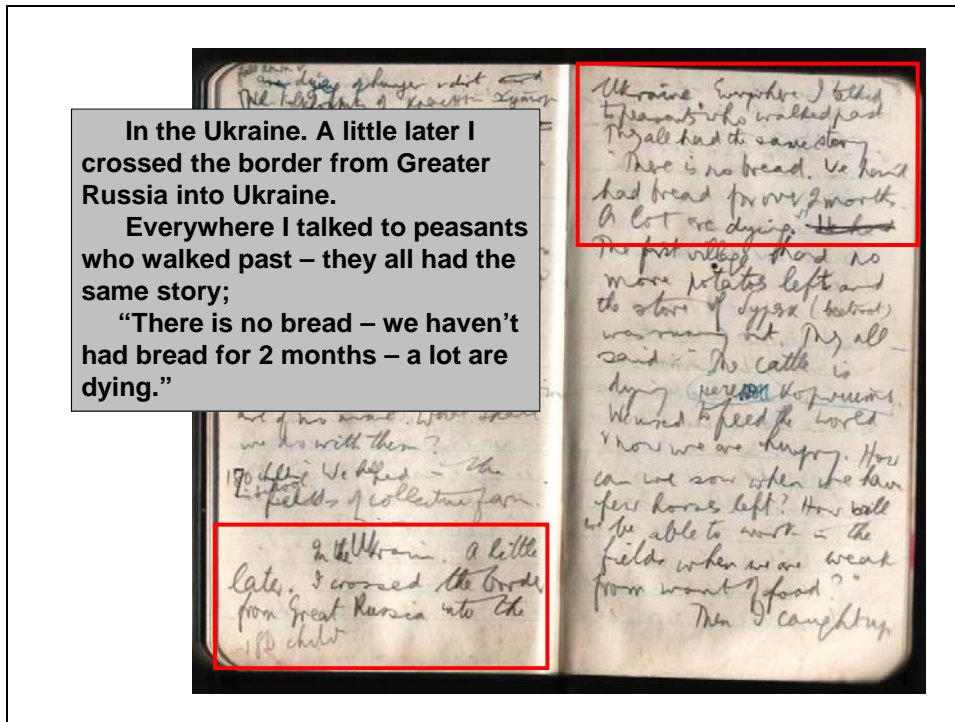 are dying of hunger
In the Ukraine. A little later I
crossed the border from Greater
Russia into Ukraine.
Everywhere I talked to peasants
who walked past – they all had the
same story;
“There is no bread – we haven’t
had bread for 2 months – a lot are
dying.”
are of no more.
we do with them?
We helped in the
fields of collective farm.
In the Ukraine. A little
later. I crossed the border
from Great Russia into the
180 child
Ukraine. Everywhere I talked
to peasants who walked past
They all had the same story
"There is no bread. We haven't
had bread for over 2 months.
A lot are dying."
The first village had no
more potatoes left and
the store of (beetroot)
was running out. They all
said "The cattle is
dying
We used to feed the world
& now we are hungry. How
can we sow when we have
few horses left? How will
we be able to work in the
fields when we are weak
from want of food?"
Then I caught up